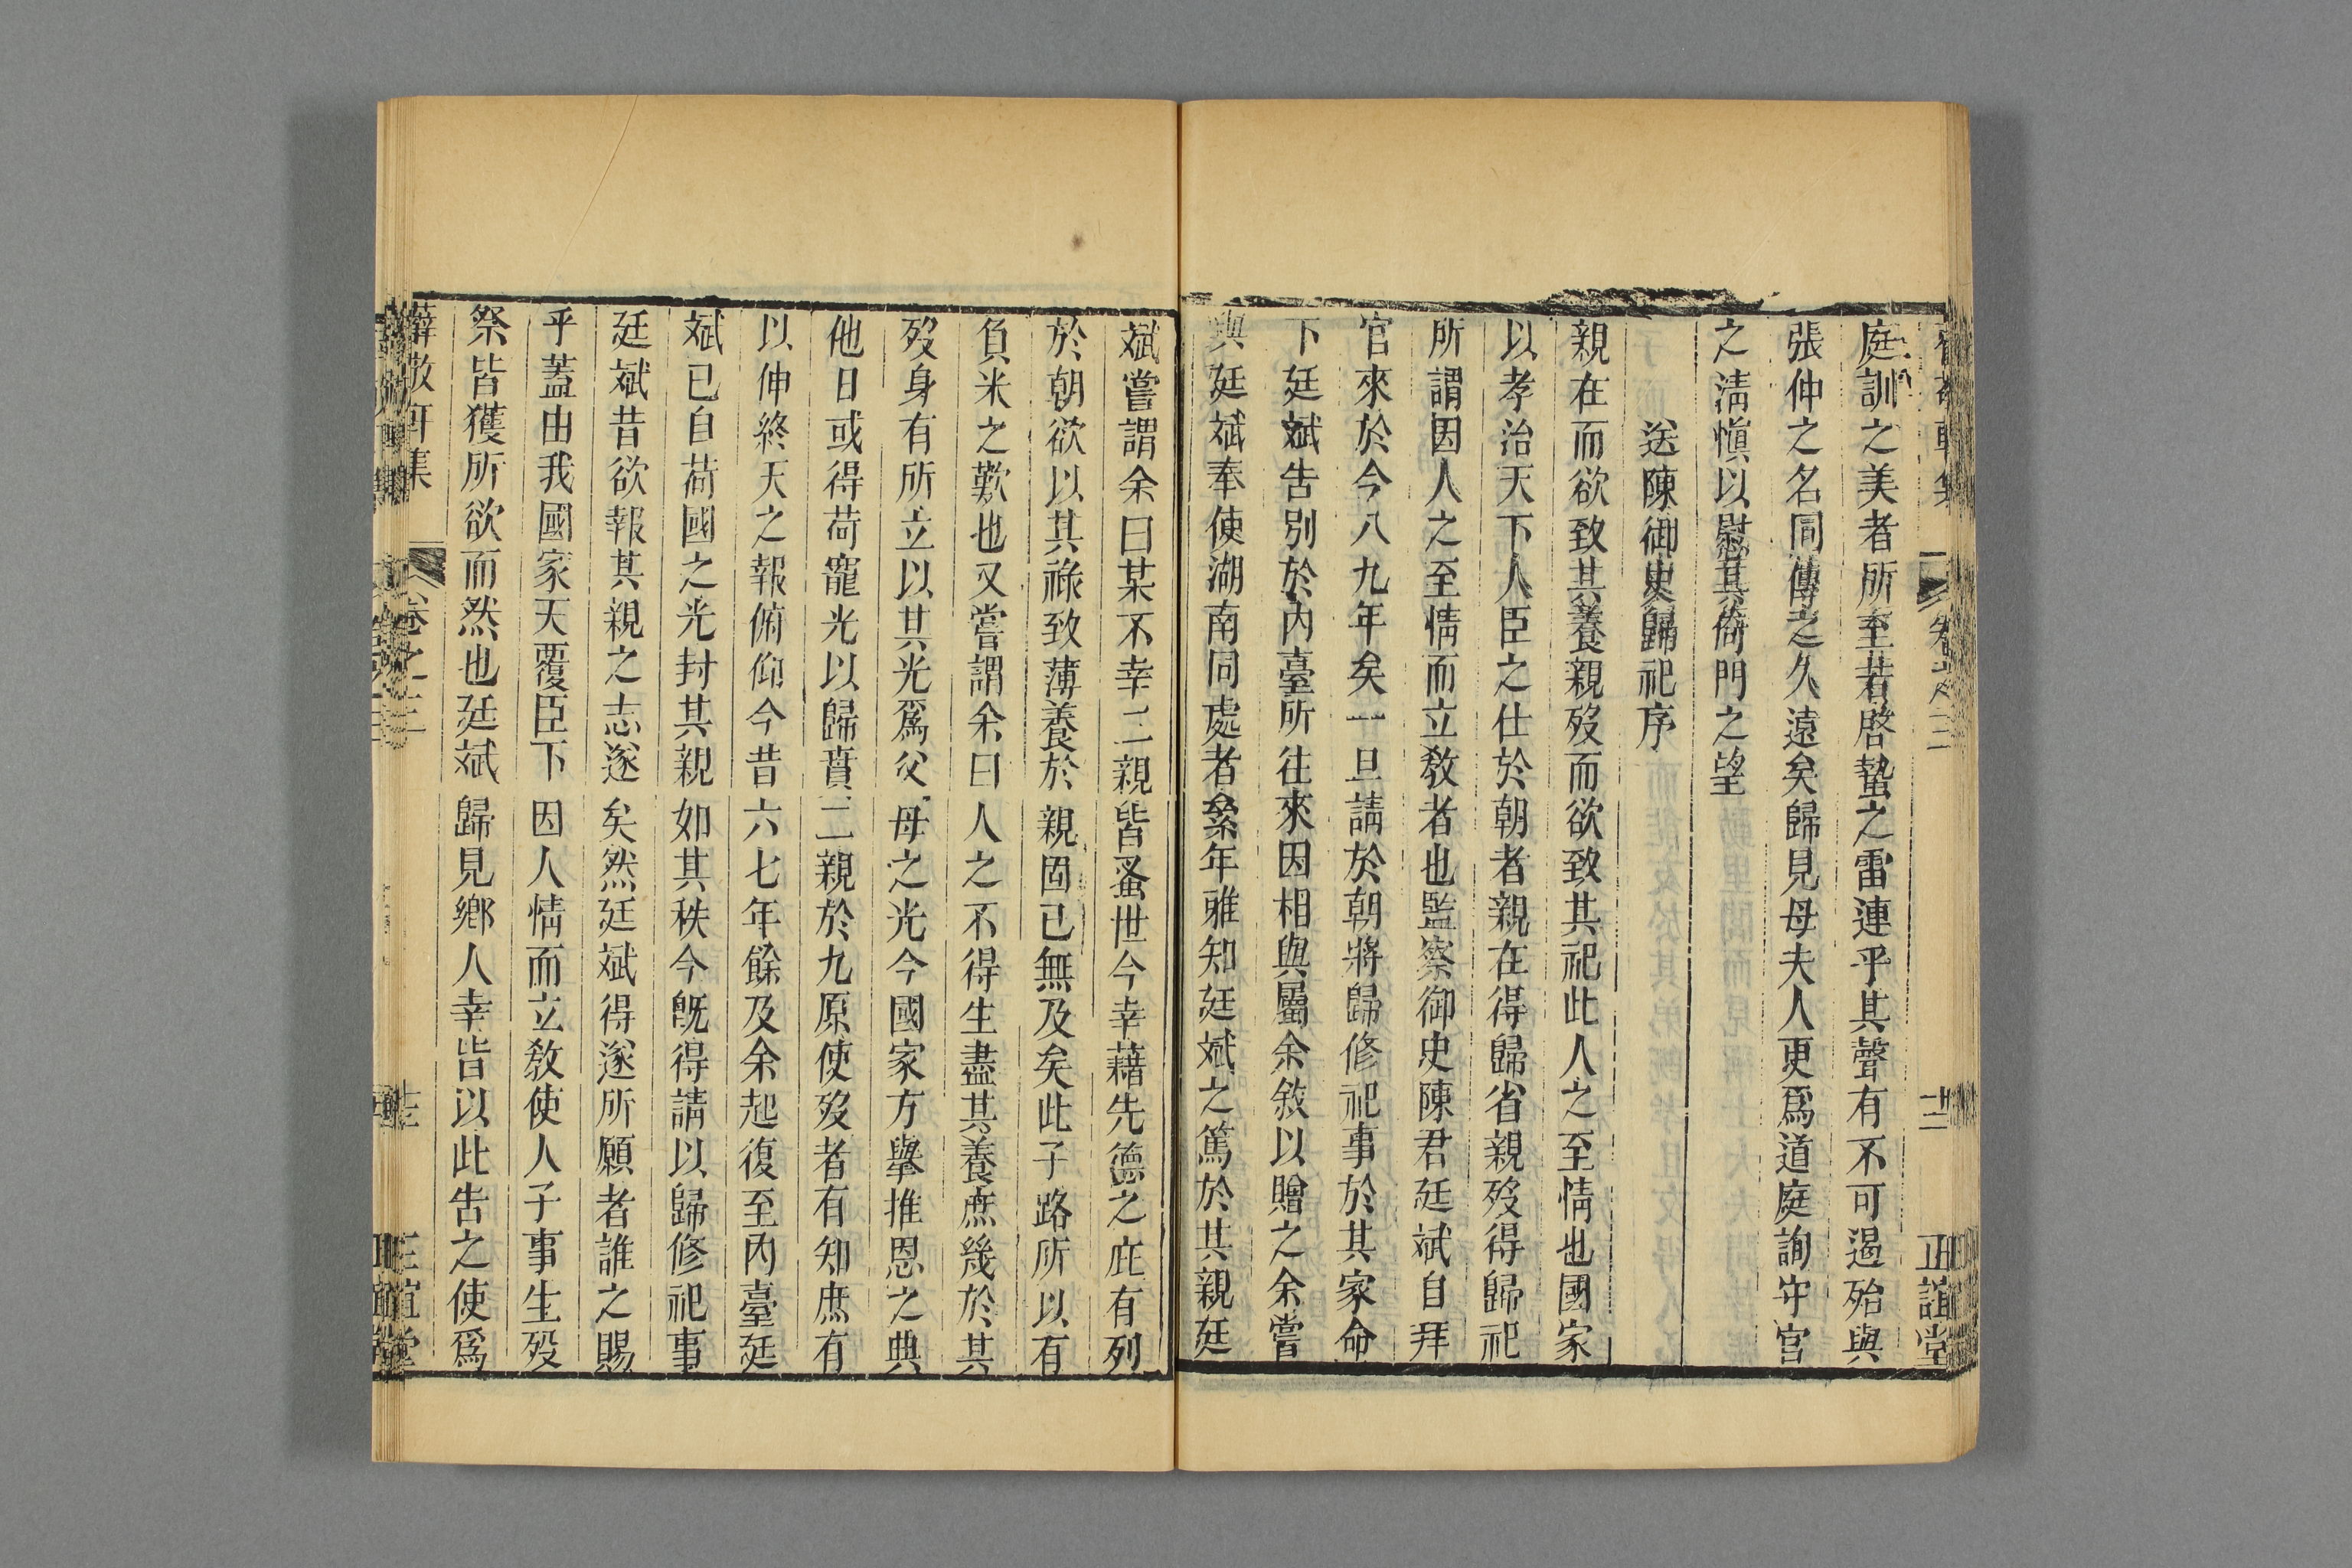 庭訓之美者所至若啓蟄之雷連乎其聲有不可遏殆與
張仲之名同傳之久遠矣歸見母夫人更爲道庭詢守官
之淸愼以慰其倚門之望
送陳御史歸祀序
親在而欲致其養親歿而欲致其祀此人之至情也國家
以孝治天下人臣之仕於朝者親在得歸省親歿得歸祀
所謂因人之至情而立敎者也監察御史陳君廷斌自拜
官來於今八九年矣一旦請於朝將歸修祀事於其家命
下廷斌告別於內臺所往來因相與屬余敘以贈之余嘗
與廷斌奉使湖南同處者絫年雅知廷斌之篤於其親廷
斌嘗謂余曰某不幸二親皆蚤世今幸藉先德之庇有列
於朝欲以其祿致薄養於親固已無及矣此子路所以有
負米之歎也又嘗謂余曰人之不得生盡其養庶幾於其
歿身有所立以其光爲父母之光今國家方舉推恩之典
他日或得荷寵光以歸賁二親於九原使歿者有知庶有
以伸終天之報俯仰今昔六七年餘及余起復至內臺廷
斌已自荷國之光封其親如其秩今旣得請以歸修祀事
廷斌昔欲報其親之志遂矣然廷斌得遂所願者誰之賜
乎蓋由我國家天覆臣下因人情而立敎使人子事生歿
祭皆獲所欲而然也廷斌歸見鄕人幸皆以此告之使爲
薛敬軒集 卷之三 正誼堂